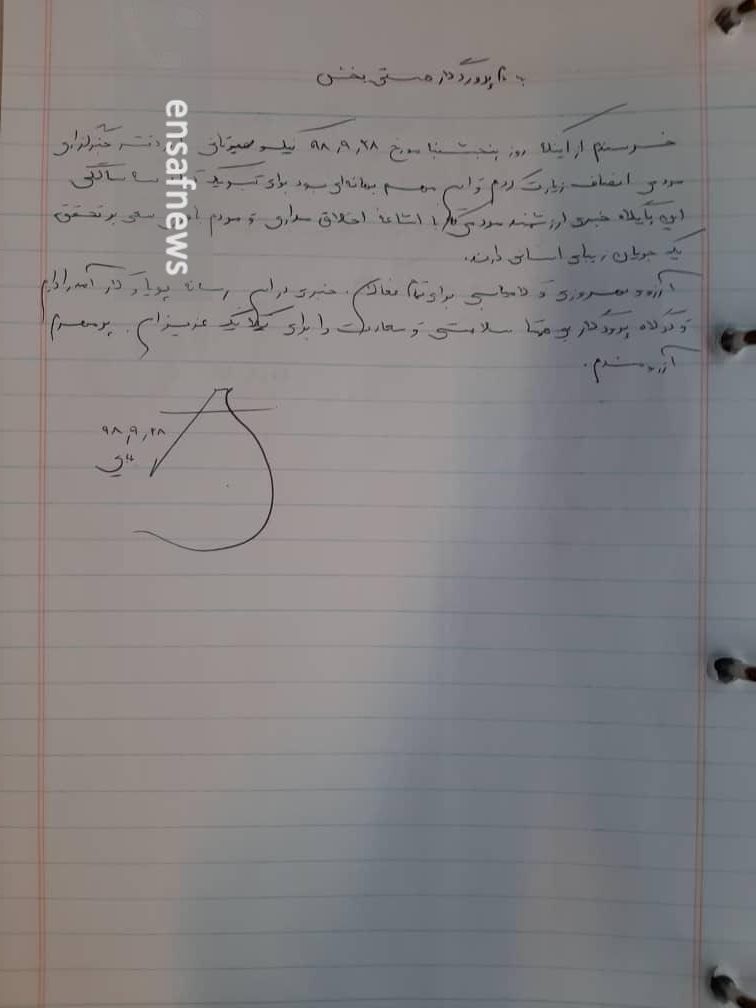 به نام پروردگار هستی بخش
خرسندم از اینکه روز پنجشنبه مورخ ۹۸,۹,۲۸ دفتر خبرگزاری
انصاف زیارت کردم و این مهم بهانه‌ای بود برای سالگی
این پایگاه خبری ارزشمند اشاعهٔ اخلاق مداری و مردم سعی بر تحقق
یک جریان زیبای انسانی دارند.
آرزوی بهروزی و برای تمام فعالان خبری در این رسانه پویا و کارآمد را دارم
و از درگاه پروردگار بی همتا سلامتی و سعادت را برای یکایک عزیزان
آرزومندم.
۹۸,۹,۲۸
ensafnews